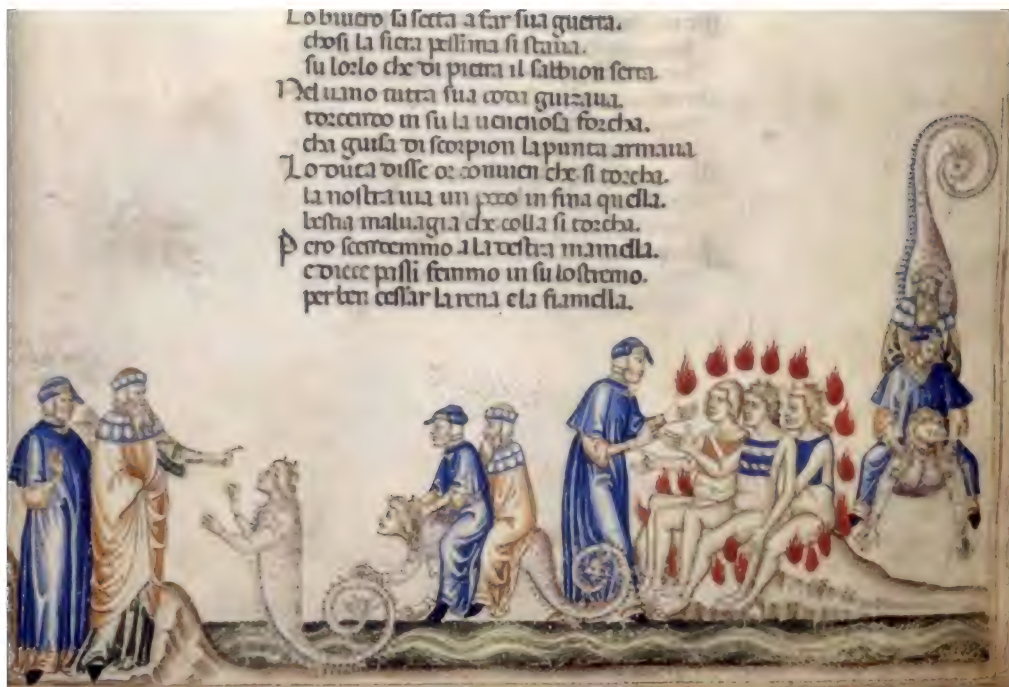 Lo biuero sa setta a far sua guerra.
chosi la fiera pessima si staua.
su lorlo che di pietra il sabbion serra.
Nel uano tutta sua coda guizaua.
torcendo in su la uenenosa forcha.
cha guisa di scorpion la punta armaua
Lo duca disse or conuien che si torcha.
la nostra uia un poco in fina quella.
bestia maluagia che colla si corcha.
Pero scendemmo a la destra mamella.
e diece passi femmo in su lostremo.
per ben cessar la rena e la fiamella.